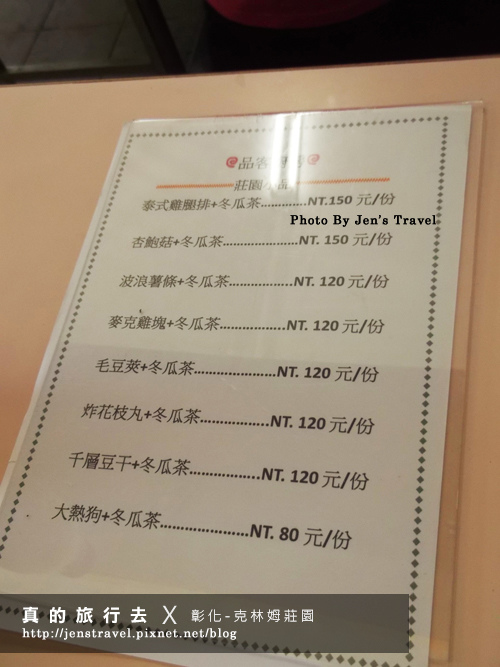 品客
莊園小品
泰式雞腿排+冬瓜茶.............NT.150 元/份
Photo By Jen's Travel
杏鮑菇+冬瓜茶......................NT. 150 元/份
波浪薯條+冬瓜茶..................NT. 120 元/份
麥克雞塊+冬瓜茶..................NT. 120 元/份
毛豆莢+冬瓜茶.......................NT. 120 元/份
炸花枝丸+冬瓜茶..................NT. 120 元/份
千層豆干+冬瓜茶..................NT. 120 元/份
大熱狗+冬瓜茶.......................NT. 80 元/份
真的旅行去 X 彰化-克林姆莊園
http://jenstravel.pixnet.net/blog